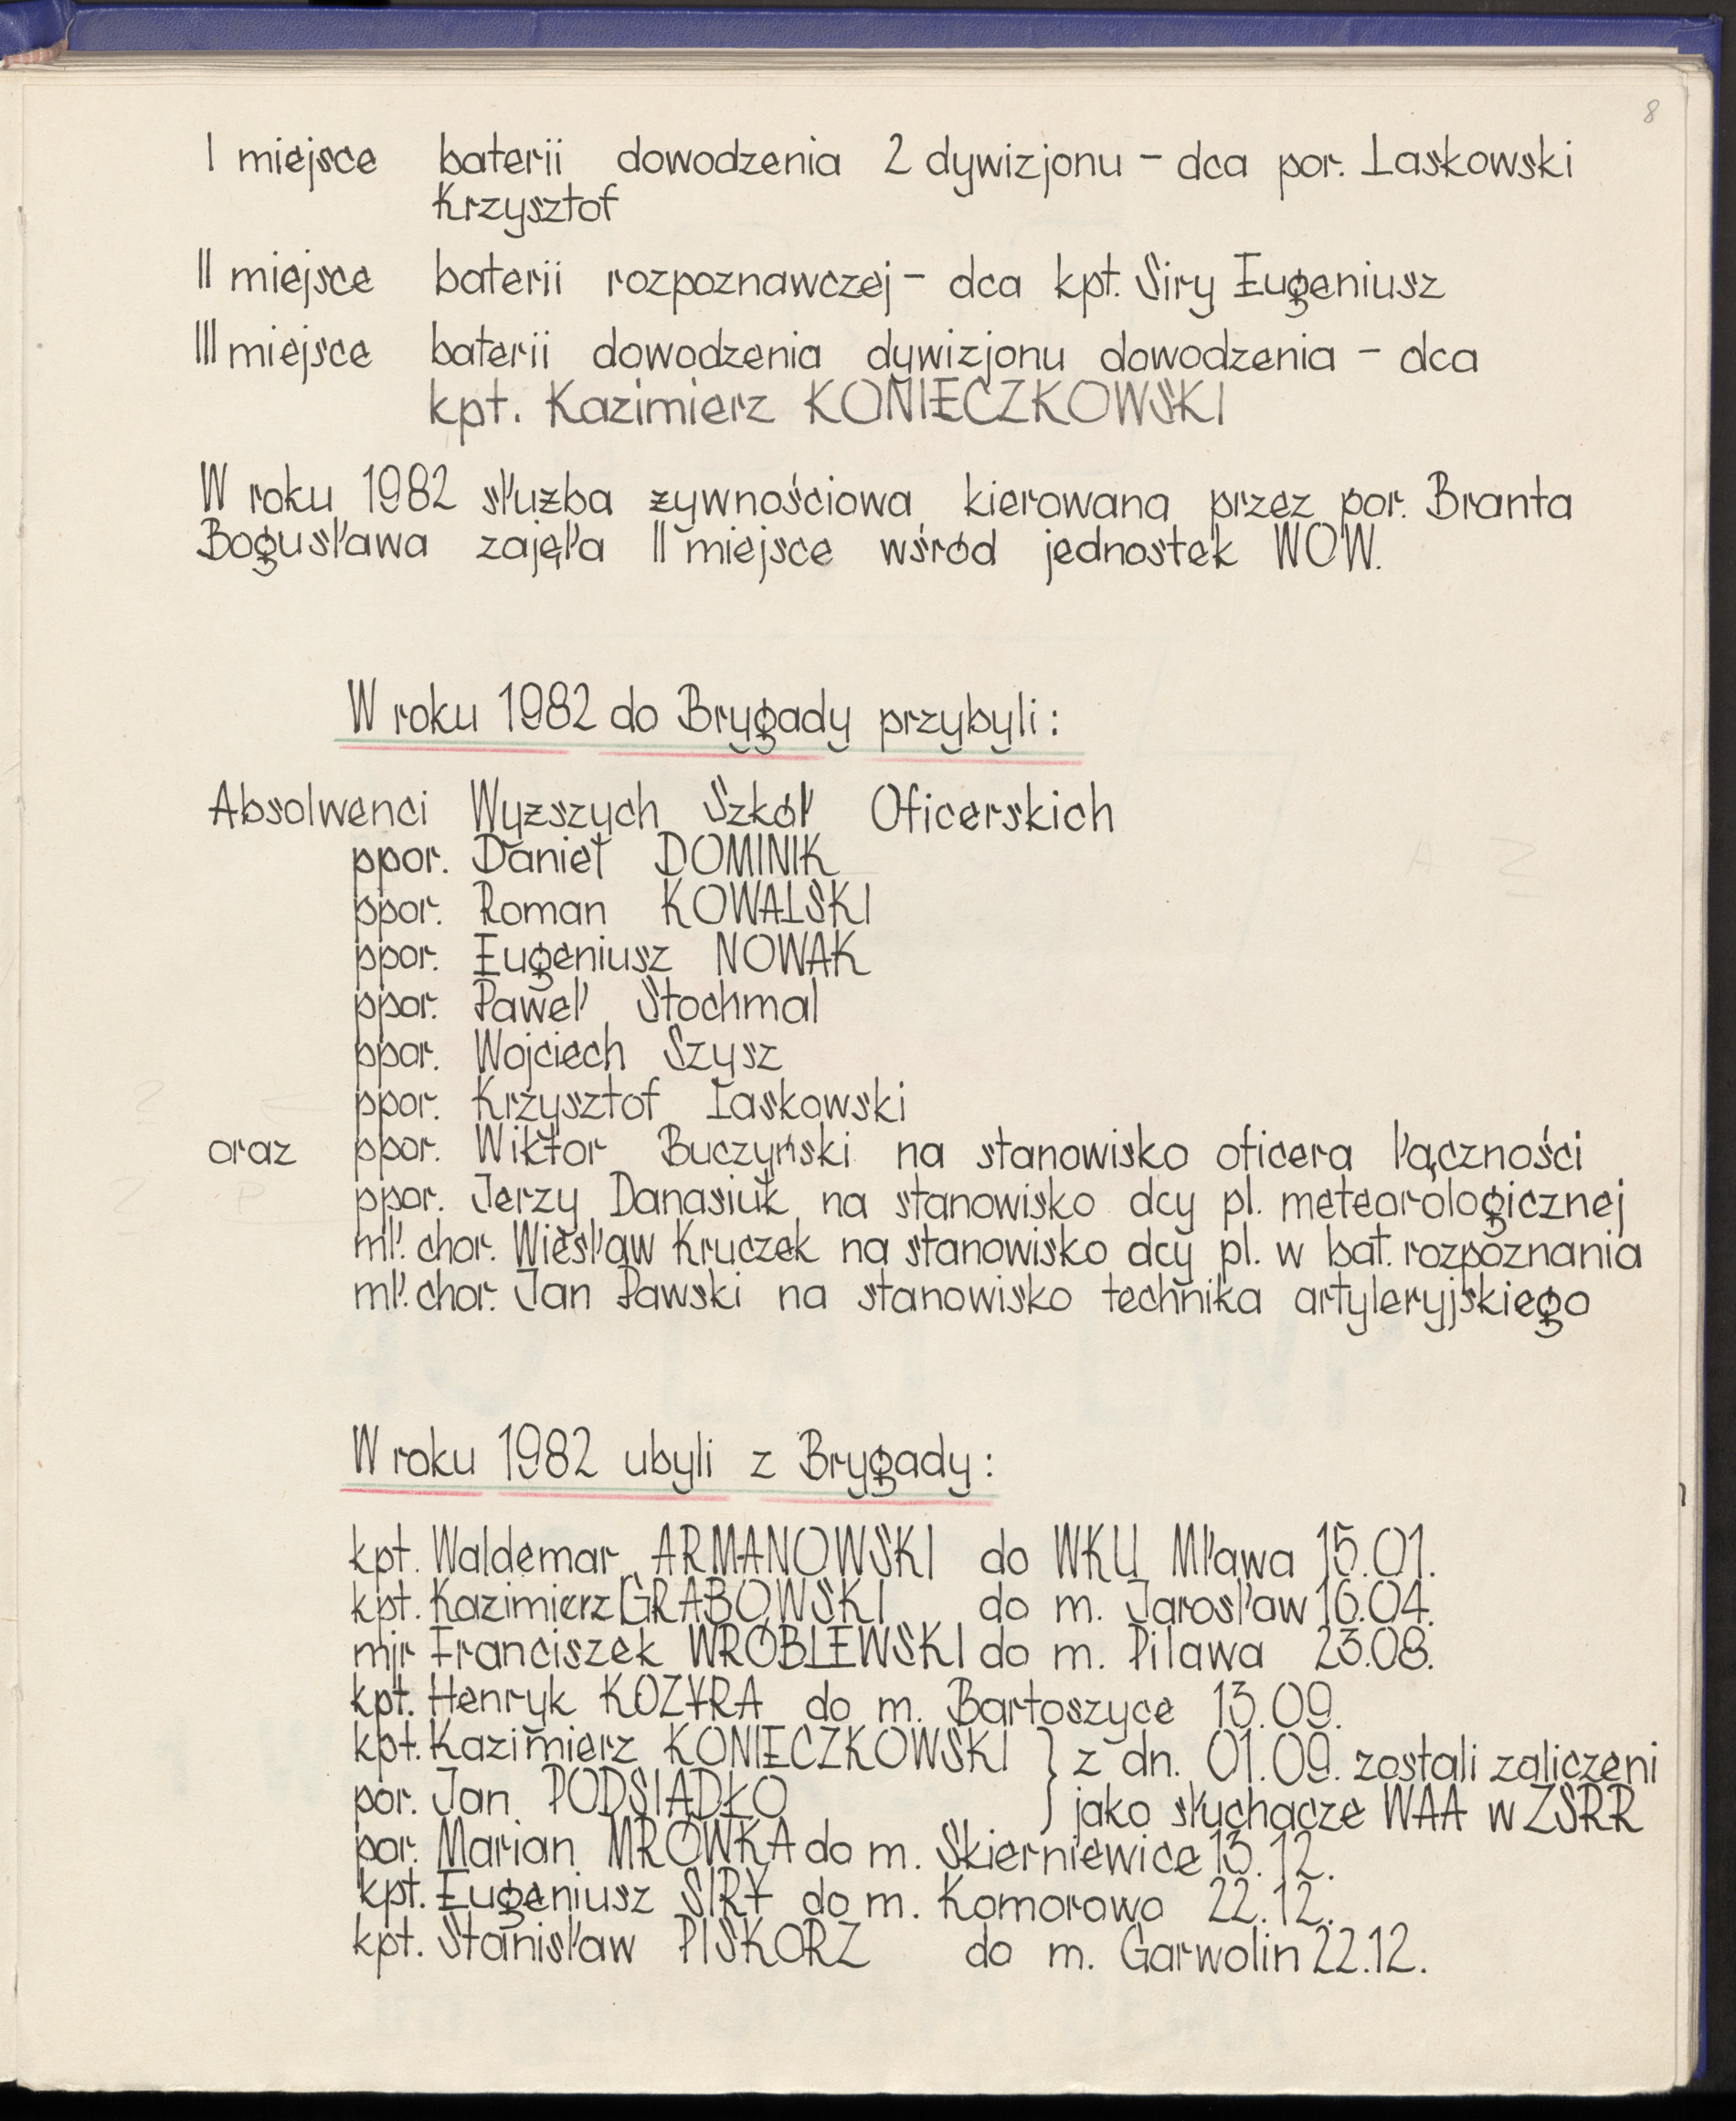 8
I miejsce baterii dowodzenia 2 dywizjonu - dca por. Laskowski
Krzysztof
II miejsce baterii rozpoznawczej - dca kpt. Siry Eugeniusz
III miejsce baterii dowodzenia dywizjonu dowodzenia - dca
kpt. Kazimierz KONIECZKOWSKI
W roku 1982 służba żywnościowa kierowana przez por. Branta
Bogusława zajęła II miejsce wśród jednostek WOW.
W roku 1982 do Brygady przybyli:
Absolwenci Wyższych Szkół Oficerskich
ppor. Danieł DOMINIK
ppor. Roman KOWALSKI
ppor. Eugeniusz NOWAK
ppor. Paweł Stochmal
ppor. Wojciech Szysz
ppor. Krzysztof Laskowski
oraz ppor. Wiktor Buczyński na stanowisko oficera łączności
ppor. Jerzy Danasiuk na stanowisko dcy pl. meteorologicznej
mł. chor. Wiesław Kruczek na stanowisko dcy pl. w bat. rozpoznania
mł. chor. Jan Pawski na stanowisko technika artyleryjskiego
W roku 1982 ubyli z Brygady:
kpt. Waldemar ARMANOWSKI do WKU Mława 15.01.
kpt. Kazimierz GRABOWSKI do m. Jarosław 16.04.
mjr Franciszek WRÓBLEWSKI do m. Pilawa 23.08.
kpt. Henryk KOZYRA do m. Bartoszyce 13.09.
kpt. Kazimierz KONIECZKOWSKI } z dn. 01.09. zostali zaliczeni
por. Jan PODSIADŁO } jako słuchacze WAA w ZSRR
por. Marian MRÓWKA do m. Skierniewice 13.12.
kpt. Eugeniusz SIRY do m. Komorowo 22.12.
kpt. Stanisław PISKORZ do m. Garwolin 22.12.